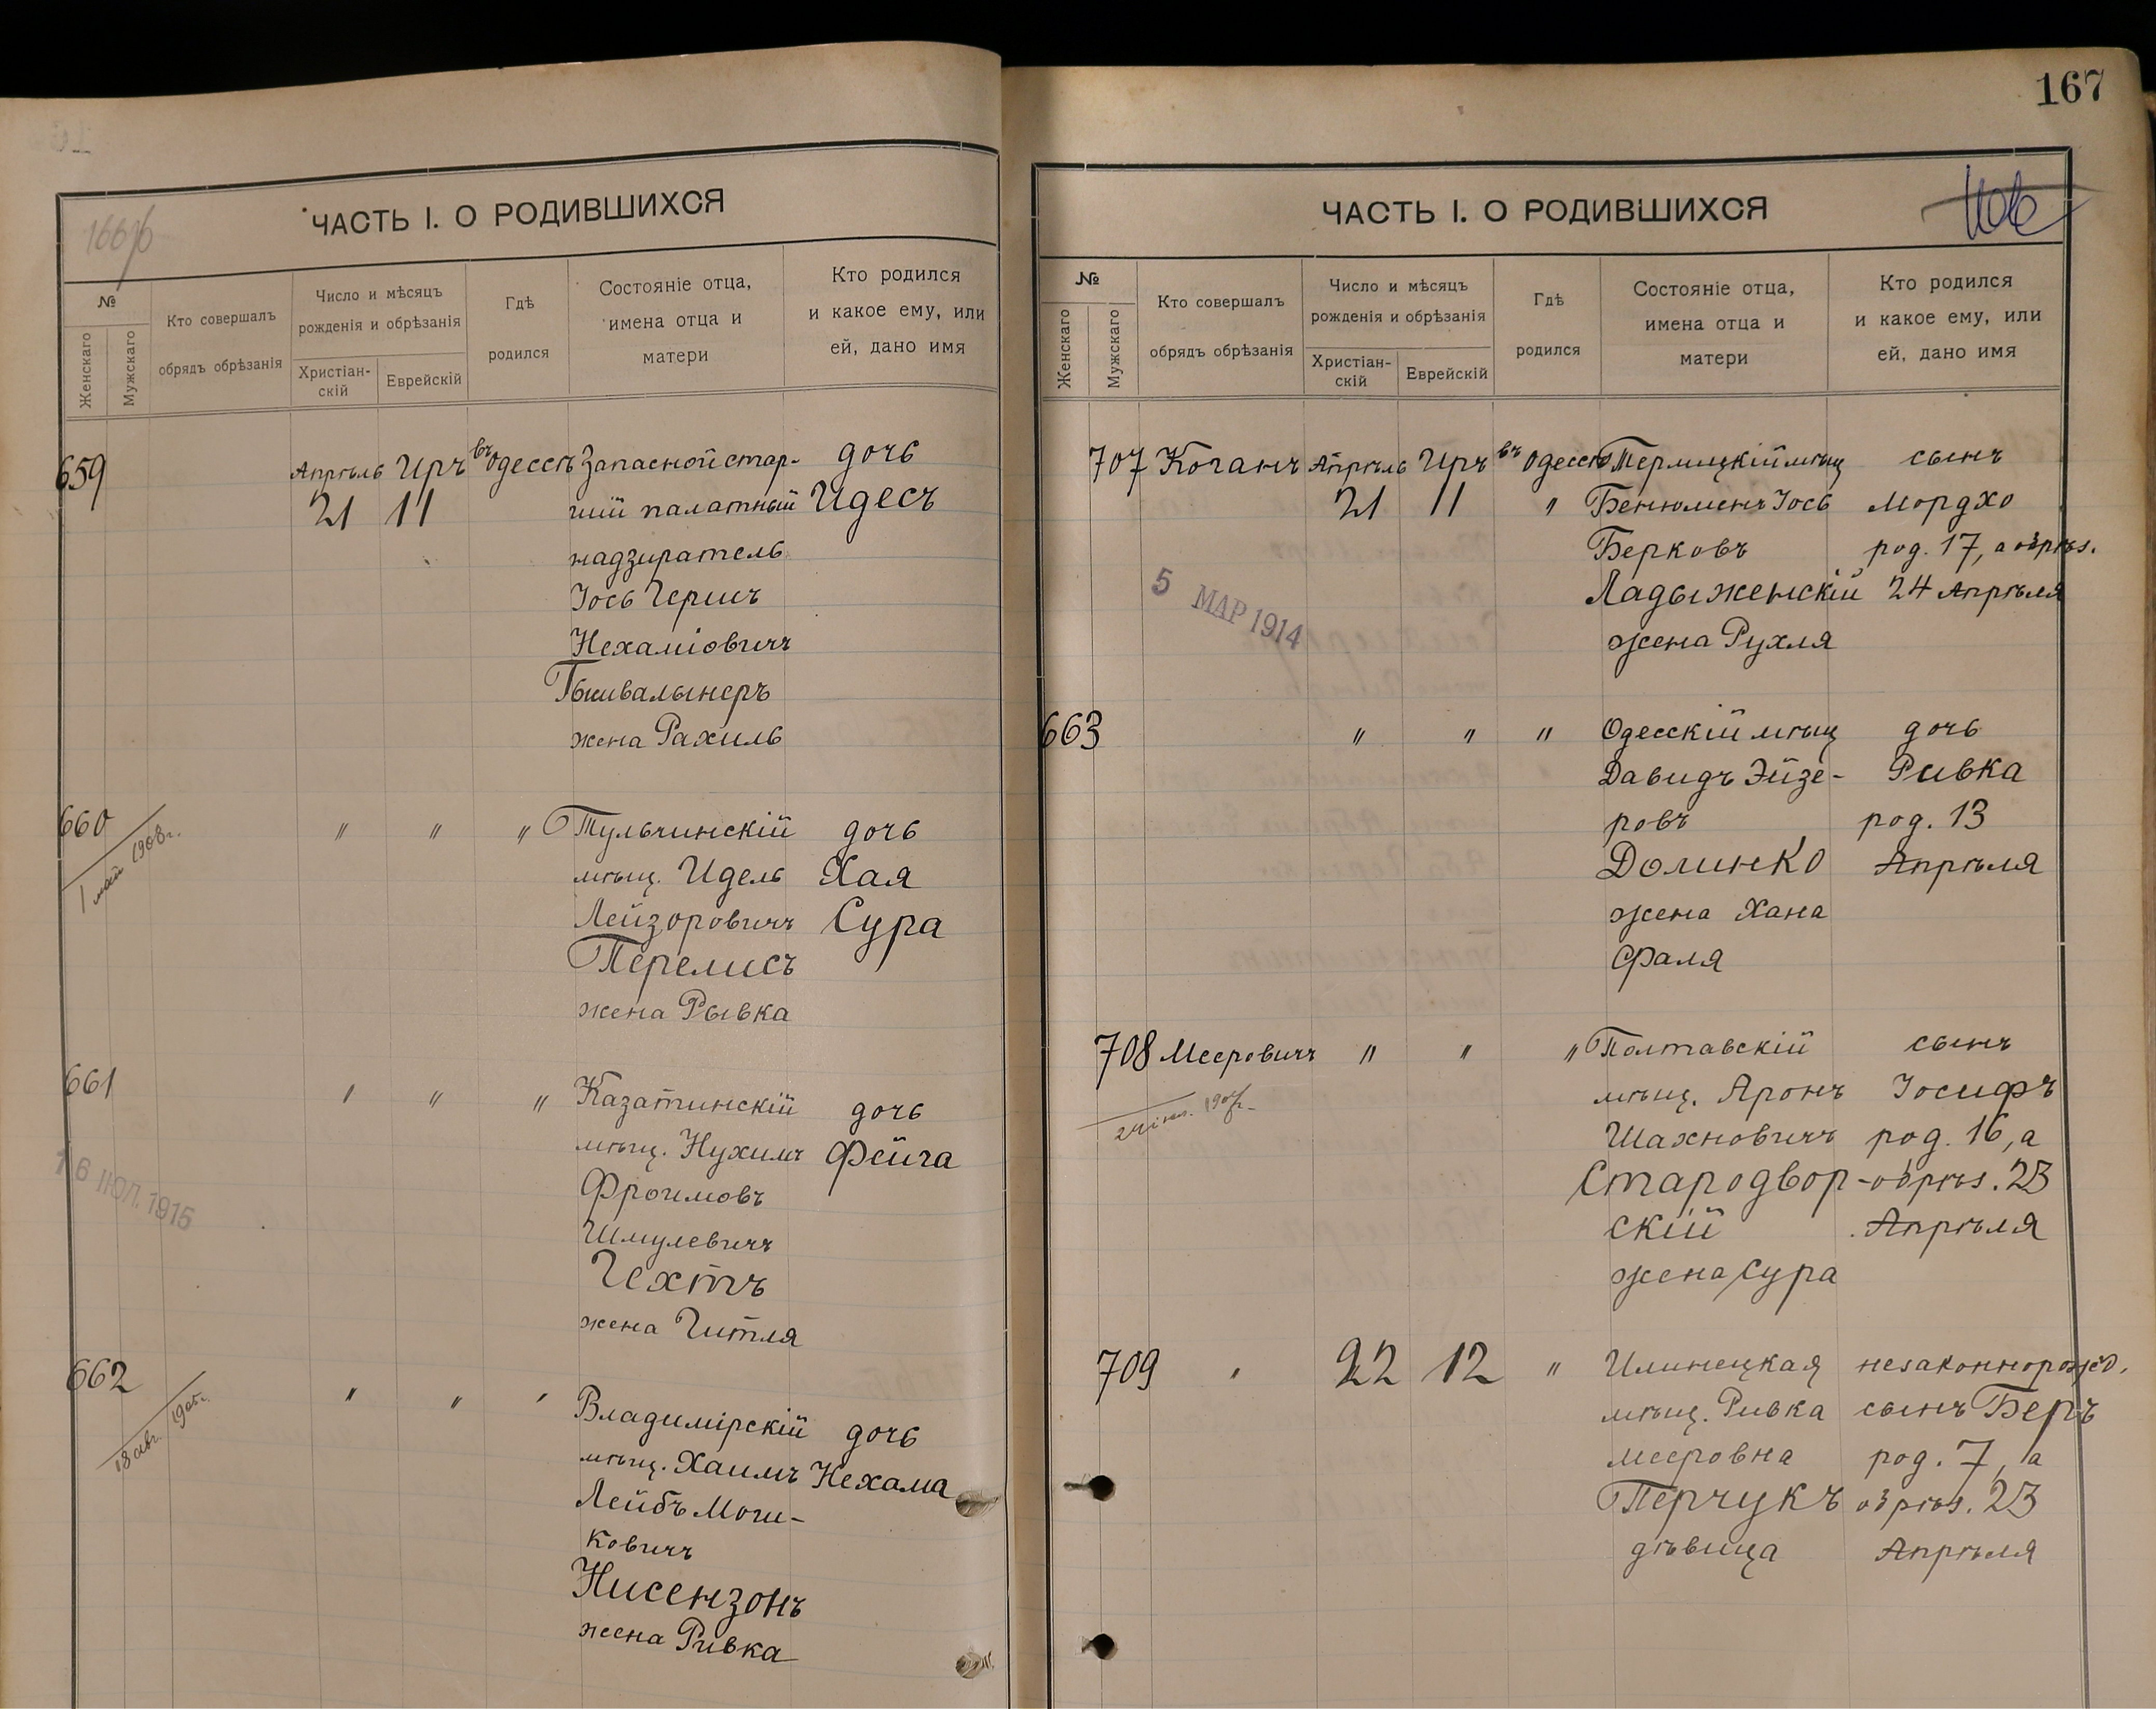 167
ЧАСТЬ I. О РОДИВШИХСЯ
№
Женскаго
Мужскаго
Кто совершалъ
обрядъ обрѣзанія
Число и мѣсяцъ
рожденія и обрѣзанія
Христіан-
скій
Еврейскій
Гдѣ
родился
Состояніе отца,
имена отца и
матери
Кто родился
и какое ему, или
ей, дано имя
659
Апрѣль
21
Иръ
11
въ Одессѣ
Запасной стар-
шій палатный
надзиратель
Іось Герш
Нехаміовичъ
жена Рахиль
дочь
Идесъ
660
1 май 1908г.
" " "
Тульчинскій
мѣщ. Идель
Лейзоровичъ
Перелисъ
жена Рывка
дочь
Хая
Сура
661
16 ІЮЛ. 1915
" " "
Казатинскій
мѣщ. Нухимъ
Фроимовъ
Шмулевичъ
Гехтъ
жена Гитля
дочь
Фейга
662
" " "
Владимірскій
мѣщ. Хаимъ
Лейбъ Моши-
ковичъ
Нисензонъ
жена Ривка
дочь
Нехама
ЧАСТЬ I. О РОДИВШИХСЯ
№
Женскаго
Мужскаго
Кто совершалъ
обрядъ обрѣзанія
Число и мѣсяцъ
рожденія и обрѣзанія
Христіан-
скій
Еврейскій
Гдѣ
родился
Состояніе отца,
имена отца и
матери
Кто родился
и какое ему, или
ей, дано имя
707
Коганъ
5 МАР 1914
Апрѣль
21
Иръ
11
въ Одессѣ
"
мѣщ
Бенюменъ Іось
Берковъ
Ладыженскій
жена Рухля
сынъ
Мордхо
род. 17, а обрѣз.
24 Апрѣля
663
" " "
Одесскій мѣщ
Давидъ Эйзе-
ровъ
Долинко
жена Хана
Фраля
дочь
Ривка
род. 13
Апрѣля
708
Мееровичъ
" " "
Полтавскій
мѣщ. Аронъ
Шахновичъ
Стародвор-
скій
жена Сура
сынъ
Іосифъ
род. 16, а
обрѣз. 23
Апрѣля
709
"
22
12
"
Илинецкая
мѣщ. Ривка
Мееровна
Перчукъ
дѣвица
незаконнорожд.
сынъ Беръ
род. 7, а
обрѣз. 23
Апрѣля